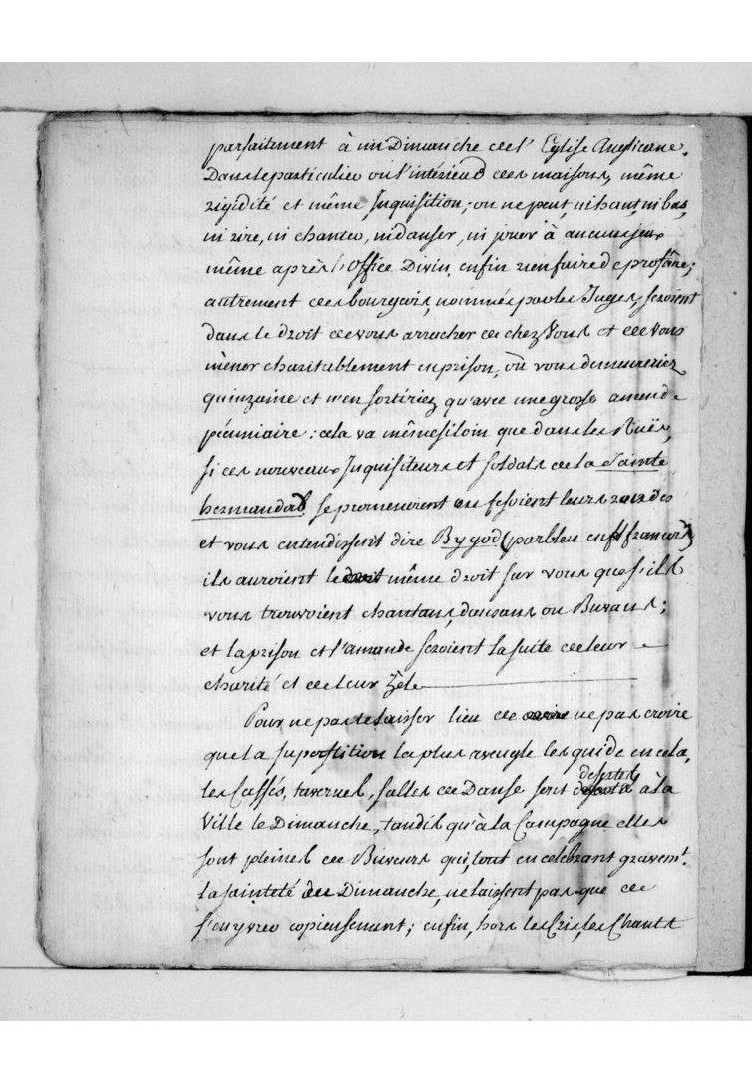 parfaitement à un Dimanche de l'Eglise Anglicane.
Dans le particulier ou l'intérieur des maisons, même
rigidité et même Inquisition; on ne peut, ni haut, ni bas,
ni rire, ni chanter, ni danser, ni jouer à aucuns jeux
même après l'Office Divin, enfin rien faire de profâne;
autrement des bourgeois, nommés par les Juges, seroient
dans le droit de vous arracher de chez Vous et de vous
mèner charitablement en prison, où vous demeureriez
quinzaine et n'en sortiriez qu'avec une grosse amende
pécuniaire: cela va même si loin que dans les Ruës,
si ces nouveaux Inquisiteurs et soldats de la Sainte
hermandad se promenoient ou fesoient leurs rondes
et vous entendissent dire By god (parbleu en françois)
ils auroient le même droit sur vous que s'ils
vous trouvoient chantans, dansans ou Buvans;
et la prison et l'amande seroient la suite de leur
charité et de leur zèle
Pour ne pas laisser lieu de ne pas croire
que la superstition la plus aveugle les guide en cela,
les Caffés, tavernes, salles de Danse sont désertes à la
Ville le Dimanche, tandis qu'à la Campagne elles
sont pleines de Buveurs qui, tout en celebrant gravemt.
la sainteté du Dimanche, ne laissent pas que de
s'enyvrer copieusement; enfin, hors les Cris, les Chants